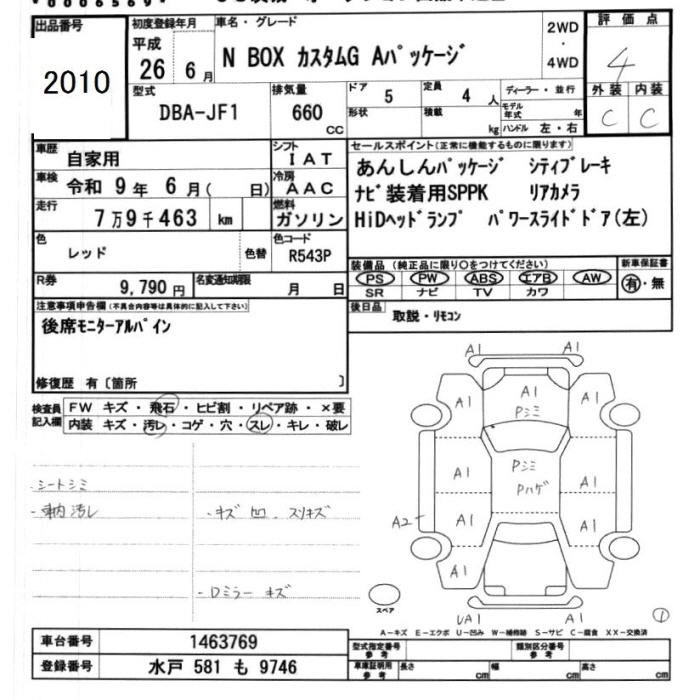 出品番号
2010
初度登録年月
平成
26年 6月
車名・グレード
N BOX カスタムG Aパッケージ
2WD
・
4WD
評価点
4
外装 内装
C C
型式
DBA-JF1
排気量
660
CC
ドア
5
定員
4 人
形状
積載
kg
ディーラー・並行
モデル年式 年
ハンドル 左・右
車歴
自家用
シフト
IAT
車検
令和 9年 6月( 日)
冷房
AAC
走行
7万9千463 km
燃料
ガソリン
色
レッド
色替
色コード
R543P
セールスポイント(正常に機能するものに限ります)
あんしんパッケージ シティブレーキ
ナビ装着用SPPK リアカメラ
HiDヘッドランプ パワースライドドア(左)
R券
9,790円
名変通知期限
月 日
装備品(純正品に限り○をつけてください)
PS PW ABS エアB AW
SR ナビ TV カワ
新車保証書
有・無
注意事項申告欄(不具合内容等は具体的に記入して下さい)
後席モニターアルパイン
後日品
取説・リモコン
修復歴 有〔箇所 〕
検査員記入欄
FW キズ・飛石・ヒビ割・リペア跡・×要
内装 キズ・汚レ・コゲ・穴・スレ・キレ・破レ
・シートシミ
・車内汚レ
・キズ 凹 スリキズ
・Dミラーキズ
A1 A1
A1 A1 A1
Pシミ
A1 Pシミ A1
Pハゲ
A2 A1 A1
A1
UA1 A1
スペア
①
A−キズ E−エクボ U−凹み W−補修跡 S−サビ C−腐食 XX−交換済
車台番号
1463769
登録番号
水戸 581 も 9746
型式指定番号
参考
類別区分番号
参考
車庫証明用
参考
長さ cm
幅 cm
高さ cm